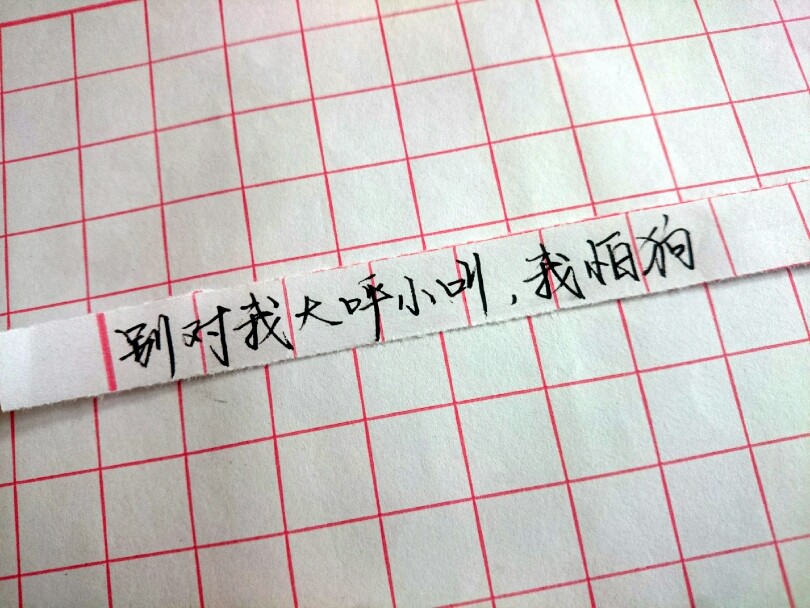 别对我大呼小叫，我怕狗